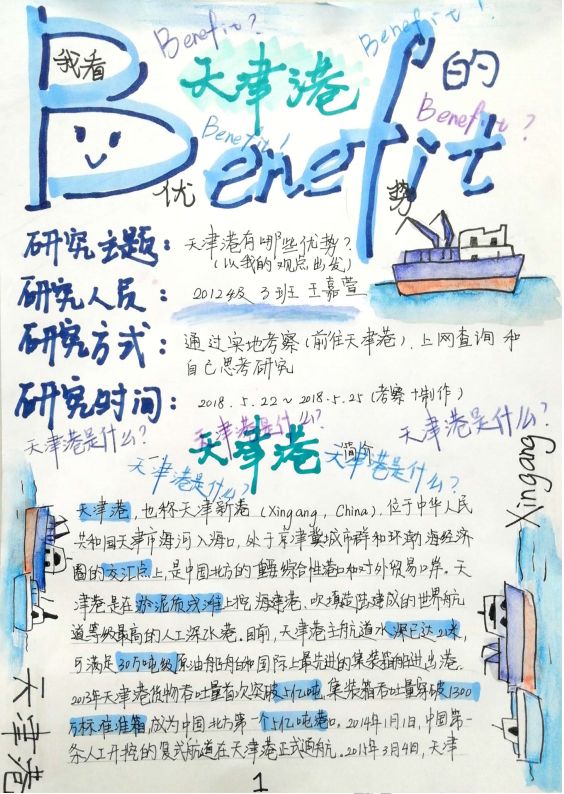 Benefit?
Benefit!
我看
天津港
的
Benefit
Benefit?
Benefit!
优
势
研究主题:
天津港有哪些优势?
(以我的观点出发)
研究人员:
2012级 3班 王嘉萱
研究方式:
通过实地考察(前往天津港)、上网查询 和
自己思考研究
研究时间:
2018.5.22~2018.5.25(考察+制作)
天津港是什么?
天津港是什么?
天津港是什么?
天津港
简介
天津港是什么?
天津港是什么?
Xingang
天津港,也称天津新港(Xingang,China),位于中华人民
共和国天津市海河入海口,处于京津冀城市群和环渤海经济
圈的交汇点上,是中国北方的重要综合性港口和对外贸易口岸。天
津港是在淤泥质浅滩上挖海建港、吹填造陆建成的世界航
道等级最高的人工深水港。目前,天津港主航道水深已达21米,
可满足30万吨级原油船舶和国际上最先进的集装箱船进出港
2013年天津港货物吞吐量首次突破5亿吨,集装箱吞吐量突破1300
万标准准箱,成为中国北方第一个5亿吨港口。2014年1月1日,中国第一
条人工开挖的复式航道在天津港正式通航。2015年3月4日,天津
天津港
1